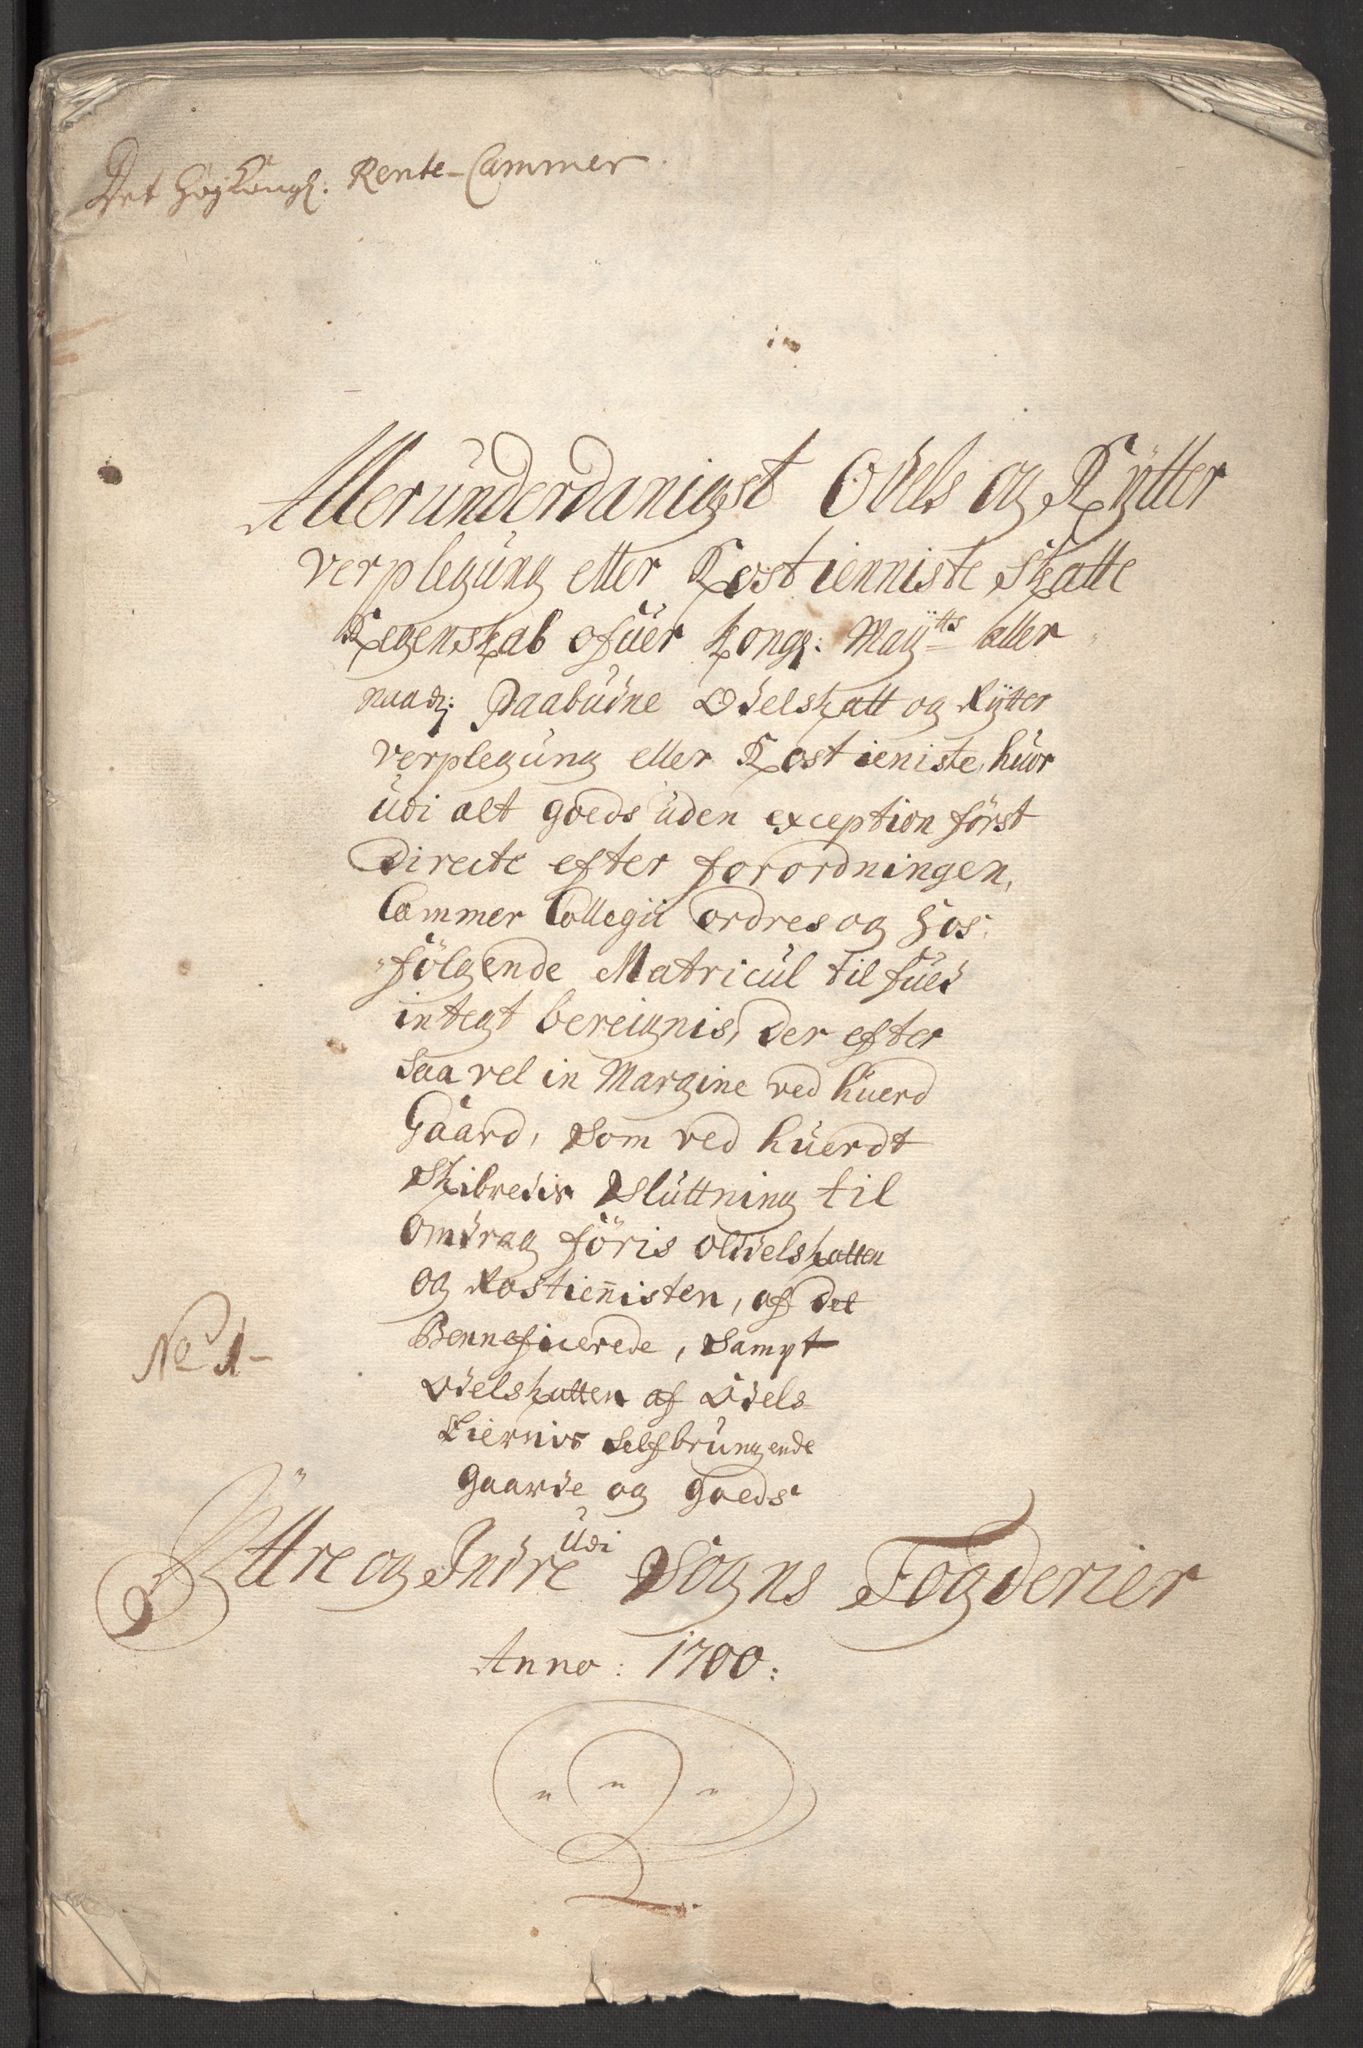 Det Høy Kongl: Rente-Cammer.
Alleründerdanigst Odels og Rÿtter
verplegüng eller Rostienniste Skatte
Regenskab ofüer Kongl: Maÿtts aller
naadl: Paabudne Odelskatt og Rÿtter
verplegüng eller Rostieniste, huor
üdi alt goeds üden exception först
Directe efter forordningen,
Cammer Collegii ordres og Hos
fölgende Matricül til füld
integt bereignis, der efter
saa vel in Margine ved hüerd
Gaard, som ved hüerdt
Skibredis Slüttning til
omdrag föris oldelskatten
og Rostieñisten, af det
Benneficerede, sampt
Odelskatten af Odels
Eiernis selfbrüngende
Gaarde og goeds
No 1-
Üdi
Ÿttre og Indre Sogns Fogderier
Anno: 1700: